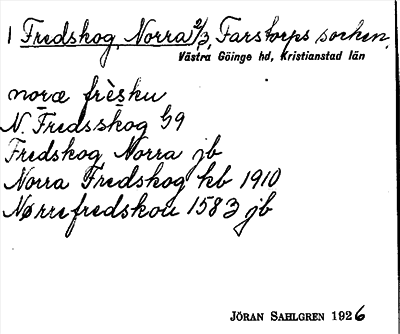 1 Fredskog, Norra 2/3, Farstorps socken,
Västra Göinge hd, Kristianstad län
noræ frèsku
N. Fredsskog G9
Fredskog, Norra jb
Norra Fredskog kb 1910
Nørrefredskou 1583 jb
JÖRAN SAHLGREN 1926